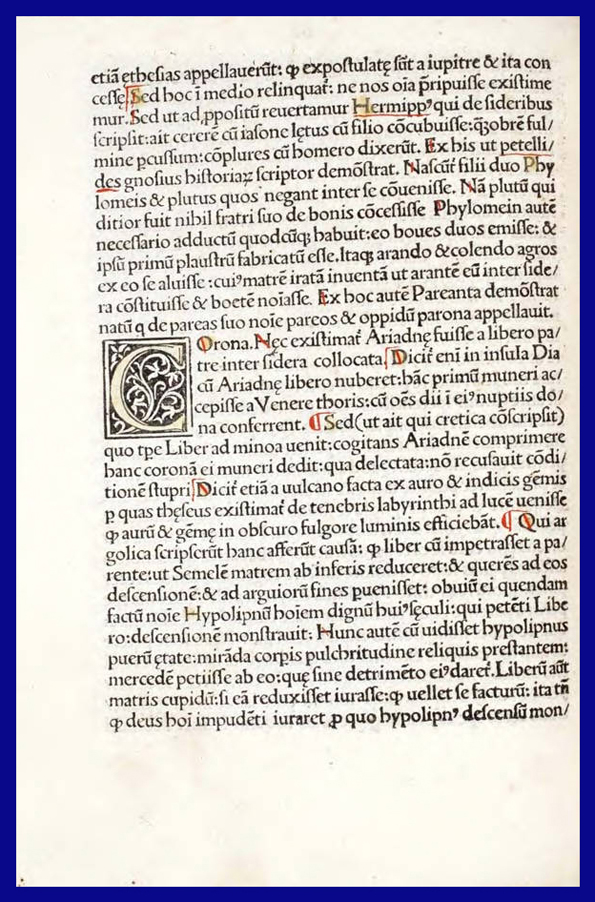 etiã ętheſias appellauerũt: ꝙ expoſtulatę ſũt a iupitre & ita con
ceſſę. Sed hoc ĩ medio relinquať: ne nos oĩa p̃ripuiſſe exiſtime
mur. Sed ut ad ꝓpoſitũ reuertamur Hermippꝰ qui de ſideribus
ſcripſit: ait cererẽ cũ iaſone lętus cũ filio cõcubuiſſe: qꝫobrẽ ful/
mine ꝑcuſſum: cõplures cũ homero dixerũt. Ex his ut petelli/
des gnoſius hiſtoriaꝝ ſcriptor demõſtrat. Naſcũť filii duo Phy
lomeis & plutus quos negant inter ſe cõueniſſe. Nã plutũ qui
ditior fuit nihil fratri ſuo de bonis cõceſſiſſe Phylomein autẽ
neceſſario adductũ quodcũqꝫ habuit: eo boues duos emiſſe: &
ipſũ primũ plauſtrũ fabricatũ eſſe. Itaqꝫ arando & colendo agros
ex eo ſe aluiſſe: cuiꝰ matrẽ iratã inuentã ut arantẽ eũ inter ſide/
ra cõſtituiſſe & boetẽ noĩaſſe. Ex hoc autẽ Pareanta demõſtrat
natũ q de pareas ſuo noĩe pareos & oppidũ parona appellauit.
COrona. Nęc exiſtimať Ariadnę fuiſſe a libero pa/
tre inter ſidera collocata. Diciť enĩ in inſula Dia
cũ Ariadnę libero nuberet: hãc primũ muneri ac/
cepiſſe a Venere thoris: cũ oẽs dii ĩ eiꝰ nuptiis do/
na conferrent. ¶ Sed (ut ait qui cretica cõſcripſit)
quo tꝑe Liber ad minoa uenit: cogitans Ariadnẽ comprimere
hanc coronã ei muneri dedit: qua delectata: nõ recuſauit cõdi/
tionẽ ſtupri. Diciť etiã a uulcano facta ex auro & indicis gẽmis
ꝑ quas theſeus exiſtimať de tenebris labyrinthi ad lucẽ ueniſſe
ꝙ aurũ & gẽmę in obſcuro fulgore luminis efficiebãt. ¶ Qui ar
golica ſcripſerũt hanc afferũt cauſã: ꝙ liber cũ impetraſſet a pa/
rente: ut Semelẽ matrem ab inferis reduceret: & querẽs ad eos
deſcenſionẽ: & ad arguiorũ fines ꝑueniſſet: obuiũ ei quendam
factũ noĩe Hypolipnũ hoĩem dignũ huiꝰ ſęculi: qui petẽti Libe
ro: deſcenſionẽ monſtrauit: Hunc autẽ cũ uidiſſet hypolipnus
puerũ ętate: mirãda corꝑis pulchritudine reliquis preſtantem:
mercedẽ petiiſſe ab eo: quę ſine detrimẽto eiꝰ dareť. Liberũ aũt
matris cupidũ: ſi eã reduxiſſet iuraſſe: ꝙ uellet ſe facturũ: ita tñ
ꝙ deus hoĩ impudẽti iuraret ꝓ quo hypolipnꝰ deſcenſũ mon/